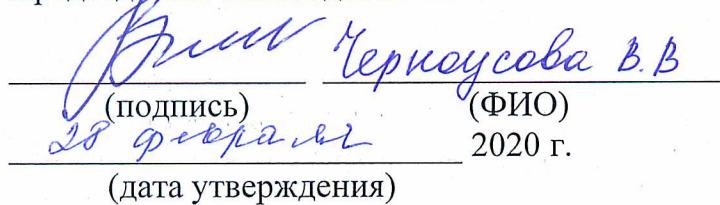 Черноусова В.В
(подпись) (ФИО)
28 февраля 2020 г.
(дата утверждения)